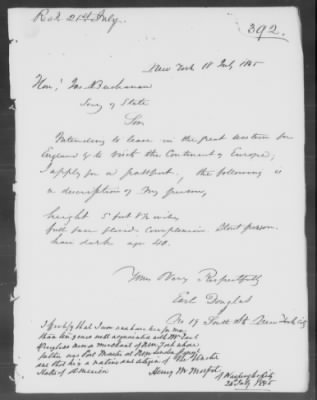 Rec'd 21st July.
392.
New York 18 July 1845
Hon. Jas Buchanan
Secy of State
Sir
Intending to leave in the great western for
England & to visit the Continent of Europe,
I apply for a passport, the following is
a description of my person,
height 5 feet 8½ inches
full face florid complexion Stout person
hair dark age 40.
Yours Very Respectfully
Earl Douglas
No 19 South St New York city
I certify that I now and have for more
than been well acquainted with Mr Earl
Douglas now a merchant of New York whose
father was Post Master at New London
and that he is a native and citizen of the United
States of America
Henry M
Washington City
20 July 1845